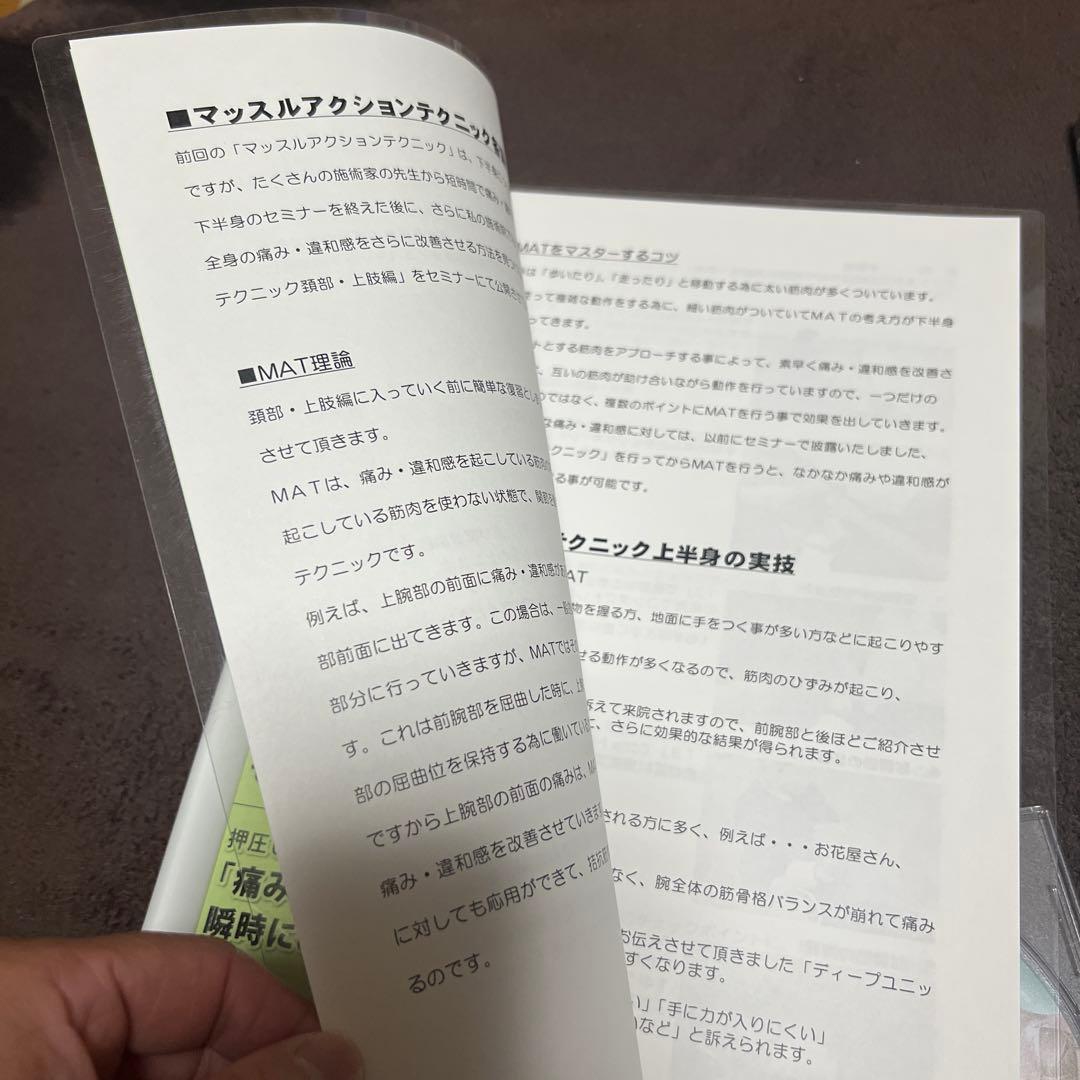 ■マッスルアクションテクニック
前回の「マッスルアクションテクニック」は、下半身
ですが、たくさんの施術家の先生から短時間で痛み・
下半身のセミナーを終えた後に、さらに私の施術
全身の痛み・違和感をさらに改善させる方法を見つ
テクニック頚部・上肢編」をセミナーにて公開させ
■MAT理論
頚部・上肢編に入っていく前に簡単な復習とし
させて頂きます。
MATは、痛み・違和感を起こしている筋肉
起こしている筋肉を使わない状態で、関節を
テクニックです。
例えば、上腕部の前面に痛み・違和感が
部前面に出てきます。この場合は、一般
部分に行っていきますが、MATではそ
す。これは前腕部を屈曲した時に、上
部の屈曲位を保持する為に働いている
ですから上腕部の前面の痛みは、MA
痛み・違和感を改善させていきま
に対しても応用ができて、拮抗筋
るのです。
MATをマスターするコツ
は「歩いたり」、「走ったり」と移動する為に太い筋肉が多くついています。
って複雑な動作をする為に、細い筋肉がついていてMATの考え方が下半身
ってきます。
トとする筋肉をアプローチする事によって、素早く痛み・違和感を改善さ
、互いの筋肉が助け合いながら動作を行っていますので、一つだけの
つではなく、複数のポイントにMATを行う事で効果を出していきます。
な痛み・違和感に対しては、以前にセミナーで披露いたしました、
クニック」を行ってからMATを行うと、なかなか痛みや違和感が
る事が可能です。
テクニック上半身の実技
MAT
物を握る方、地面に手をつく事が多い方などに起こりやす
せる動作が多くなるので、筋肉のひずみが起こり、
訴えて来院されますので、前腕部と後ほどご紹介させ
に、さらに効果的な結果が得られます。
される方に多く、例えば・・・お花屋さん、
なく、腕全体の筋骨格バランスが崩れて痛み
お伝えさせて頂きました「ディープユニッ
すくなります。
い」「手に力が入りにくい」
いなど」と訴えられます。
押圧
「痛み
瞬時に